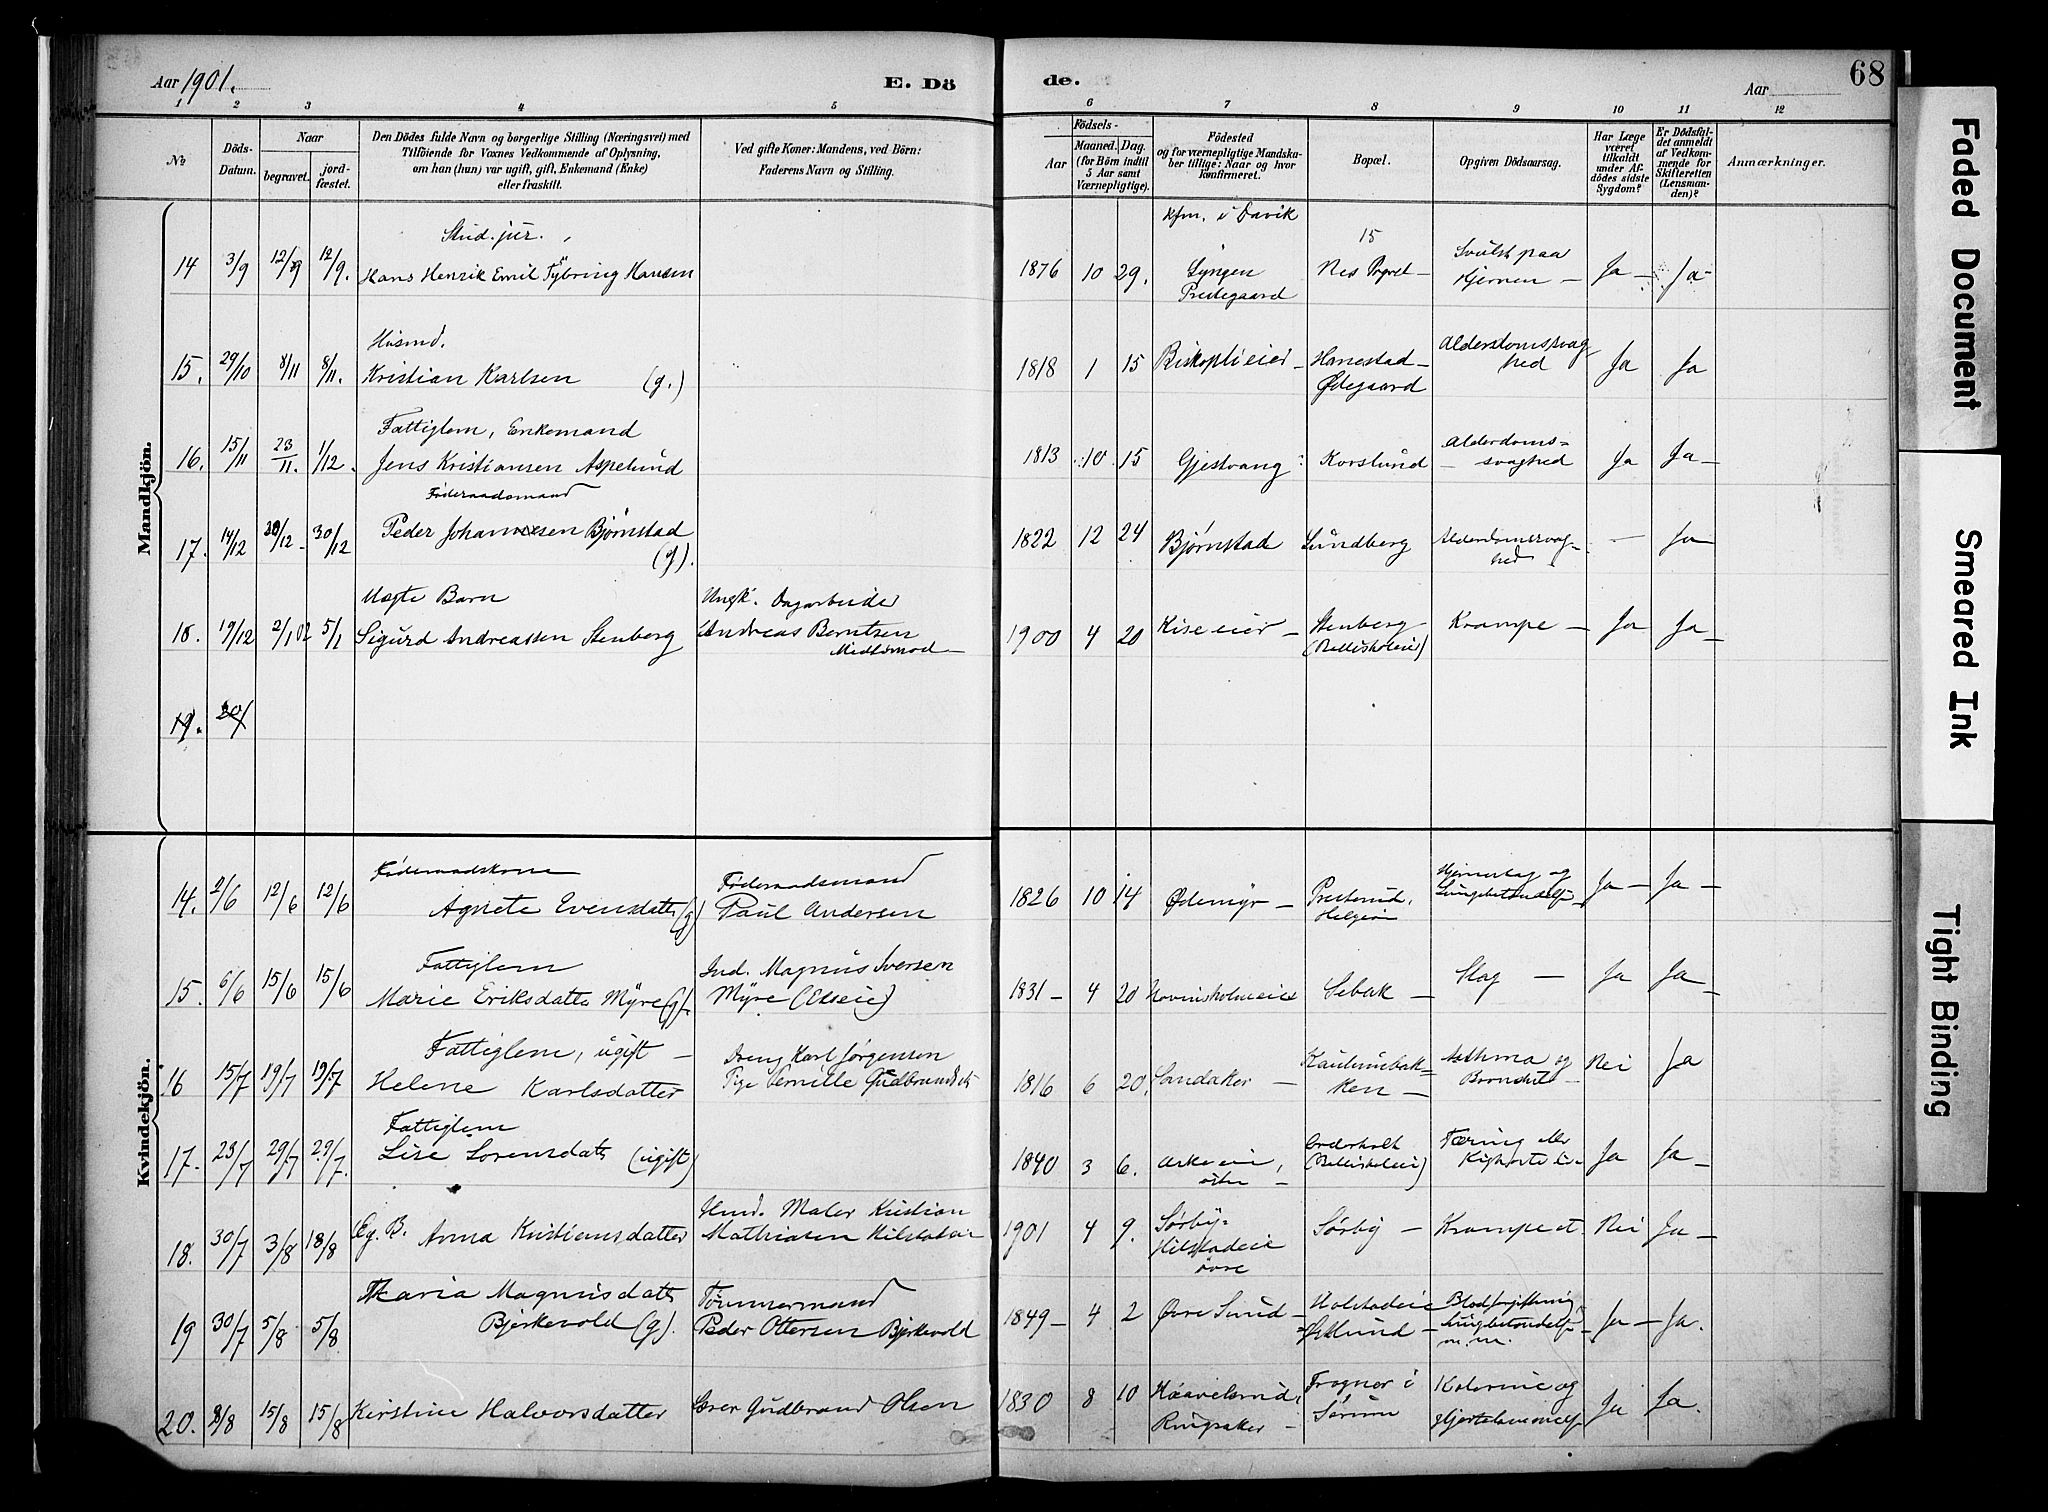 Aar 1901.
E. Dö
de.
Aar
68
1 2 3 4 5 6 7 8 9 10 11 12
No
Döds-Datum.
Naar
begravet.
jord-fæstet.
Den Dödes fulde Navn og borgerlige Stilling (Næringsvei) med
Tilföiende for Voxnes Vedkommende af Oplysning,
om han (hun) var ugift, gift, Enkemand (Enke)
eller fraskilt.
Ved gifte Koner: Mandens, ved Börn:
Faderens Navn og Stilling.
Födsels-
Aar
Maaned. Dag.
(for Börn indtil
5 Aar samt
Værnepligtige).
Födested
og for værnepligtige Mandska-
ber tillige: Naar og hvor
konfirmeret.
Bopæl.
Opgiven Dödsaarsag.
Har Læge
været
tilkaldt
under Af-
dödes sidste
Sygdom?
Er Dödsfal-
det anmeldt
af Vedkom-
mende for
Skifteretten
(Lensman-
den)?
Anmærkninger.
Mandkjön.
Stud. jur.
Kfm. i Davik
14 3/9 12/9 12/9. Hans Henrik Emil Tybring Hansen 1876 10 29. Lyngen Prestegaard 15 Nes Prgrd - Svulst paa Hjernen - Ja - Ja -
Husmd.
15. 29/10 8/11 8/11. Kristian Karlsen (g.) 1818 1 15 Biskoplieier - Hanestad- Ødegaard Alderdomssvag hed Ja Ja
Fattiglem, Enkemand
16. 15/11 23/11. 1/12. Jens Kristiansen Aspelund 1813 10 15 Gjestvang Korslund Alderdoms= svaghed Ja Ja -
Føderaadsmand
17. 14/12 30/12 30/12 Peder Johannesen Bjørnstad (g). 1822 12 24 Bjørnstad Sundberg Alderdomssvag- hed - Ja
Uægte Barn Ungk. Dagarbeider
18. 19/12 2/1 02 5/1 Sigurd Andreassen Stenberg Andreas Berntsen 1900 4 20 Kise eier - Stenberg Krampe - Ja Ja -
19. 20/
Kvindekjön.
Føderaadskone Føderaadsmand
14. 2/6 12/6 12/6 Agnete Evensdatter (g) Paul Andersen 1826 10 14 Ødemyr - Presterud, Helgøen Hjerneslag og Lungebetændelse Ja - Ja -
Fattiglem Ind. Magnus Iversen
15. 6/6 15/6 15/6 Marie Eriksdatter Myre (g). Myre 1831 - 4 20 Hovinsholmeiet - Slag - Ja Ja -
Fattiglem, ugift - Dreng Karl Jørgensen
16 15/7 19/7 19/7 Helene Karlsdatter Pige Pernille Gudbrandsdt 1816 6 20. Sandaker - Asthma og Nei Ja
Fattiglem
17. 23/7 29/7 29/7. Lise Lorensdatr (ugift) 1840 3 6. Tæring eller Ja Ja -
Hmd. Maler Kristian
18. 30/7 3/8 18/8 Eg. B. Anna Kristiansdatter Mathiasen 1901 4 9. Sørby- Hilstadeie øvre Sørby - Krampe Nei Ja -
19 30/7 5/8 5/8 Maria Magnusdatr Bjerkevold (g). Tømmermand Peder Ottersen Bjerkevold 1849 - 4 2 Øvre Sund - Blodforgiftning Lungebetændelse m. m. Ja - Ja.
20. 9/8 15/8 15/8 Kirstine Halvorsdatter Gudbrand Olsen 1830 8 10 Haavelsrud, Ringsaker - Frogner i Sørum Kolerine og Ja Ja.
Faded Document
Smeared Ink
Tight Binding